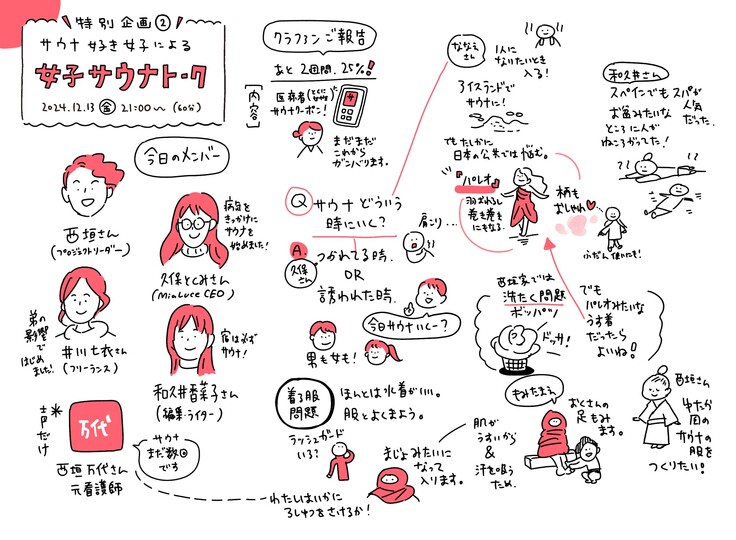 特別企画②
サウナ好き女子による
女子サウナトーク
2024.12.13 金 21:00〜 (60分)
今日のメンバー
西垣さん
(プロジェクトリーダー)
病気を
きっかけに
サウナを
始めました!
久保とくみさん
(MiaLuce CEO)
弟の
影響で
はじめ
ました!
井川七衣さん
(フリーランス)
宿は必ず
サウナ!
和久井香菜子さん
(編集・ライター)
*声だけ
万代
西垣万代さん
元看護師
サウナ
まだ数回
です
クラファンご報告
あと2週間、25%!
[内容]
医療者(とくにナース)
サウナクーポン!
サ
まだまだ
これから
ガンバります。
Q サウナどういう
時にいく?
A
久保さん
つかれてる時、
OR
誘われた時、
肩こり...
今日サウナいくー?
男も女も!
着る服
問題
ほんとは水着がいい。
服とよくまよう。
ラッシュガード
いる?
まじょみたいに
なって
入ります。
わたしはいかに
ろしゅつをさけるか!
ななえ
さん
1人に
なりたいとき
入る!
アイスランドで
サウナに!
でもたしかに
日本の公共では悩む。
『パレオ』
羽おれるし
巻き巻き
にもなる。
柄も
おしゃれ
ふだん使いにも!
和久井さん
スペインでもスパが
人気
だった。
お盆みたいな
ところに人が
ねころがってた!
西垣家では
洗たく問題
ボッパツ
ドッサ!
でも
パレオみたいな
うす着
だったら
よいね!
もみたまえ
肌が
うすいから
&
汗を吸う
ため、
おくさんの
足もみ
ます。
西垣さん
ゆたか
周の
サウナの
服を
つくりたい!